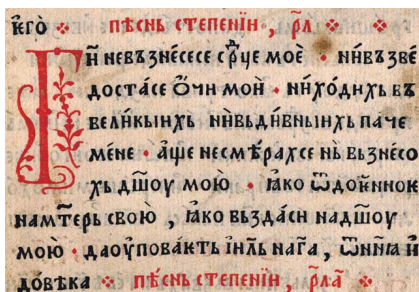 ѥго̀ ❖ пѣснь степенїи , р҃л ❖ ❖
Гн҃ невъзнесесе срⷣце моѐ • нивъзве
достасе ѻ҆чи моѝ • ниходихь въ
великыихь нивьдивныихь паче
мене • аще несмѣрахсе нь̀ възнесо
хь дш҃оу мою̀ • ꙗко ѿдоиѥнноѥ
наматерь свою̀ , ꙗко въздаси надш҃оу
мою̀ • даоуповаѥть ін҃ль нага , ѿнн҃ꙗ и҆
довѣка ❖ пѣснь степенїи , р҃ла ❖